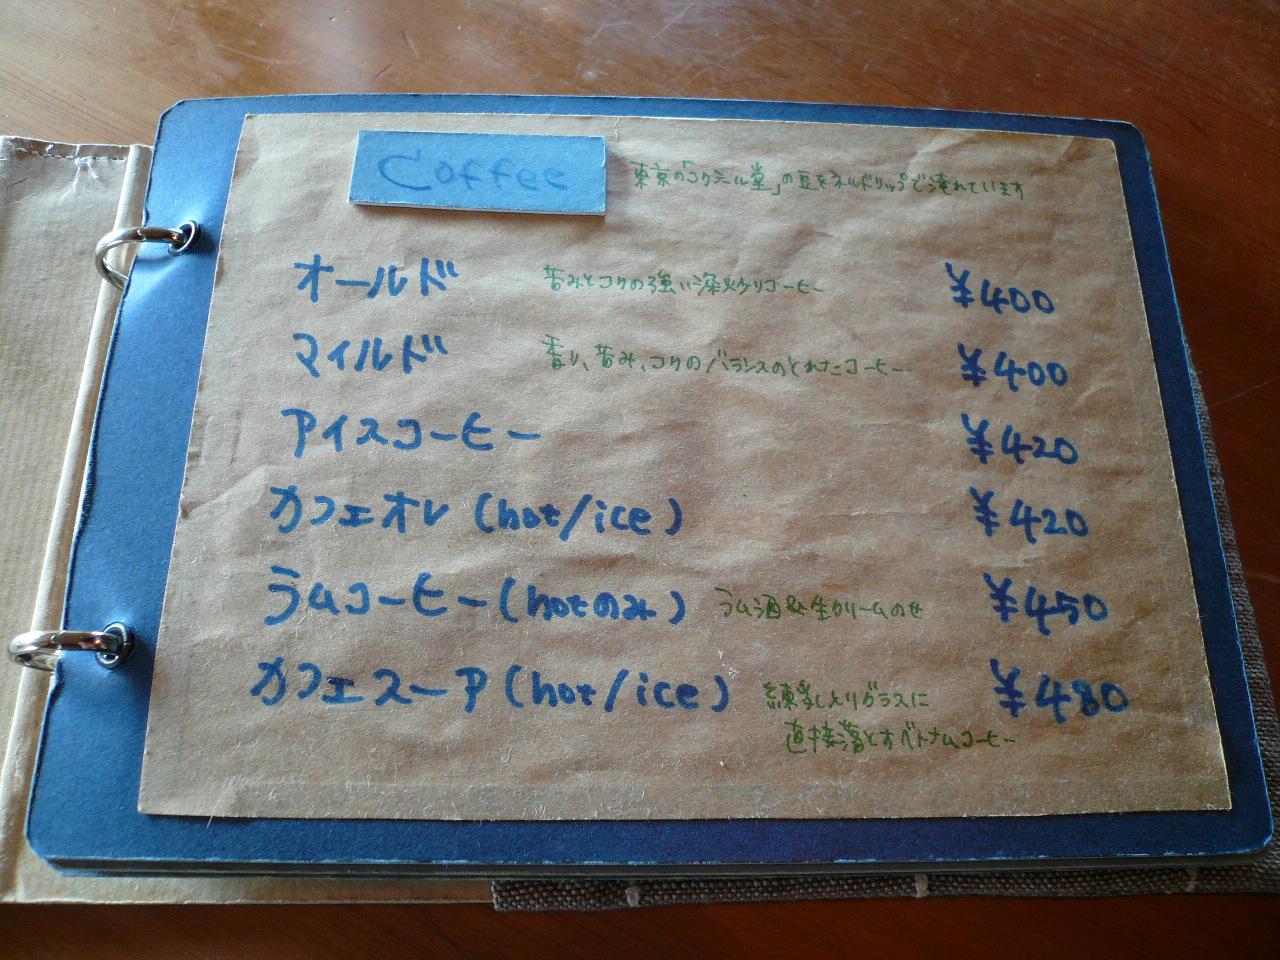 Coffee 東京の「コクテール堂」の豆をネルドリップで淹れています
オールド 苦みとコクの強い深炒りコーヒー ¥400
マイルド 香り、苦み、コクのバランスのとれたコーヒー ¥400
アイスコーヒー ¥420
カフェオレ (hot/ice) ¥420
ラムコーヒー (hotのみ) ラム酒&生クリームのせ ¥450
カフェスーア (hot/ice) 練乳入りグラスに ¥480
直接落とすベトナムコーヒー